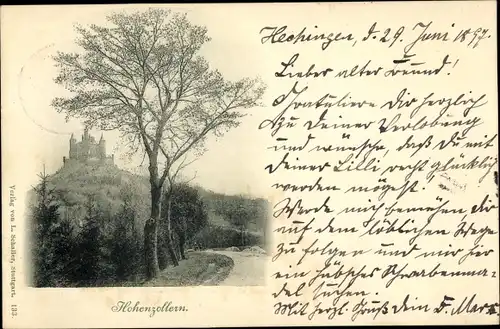 Hechingen, d. 29. Juni 1897.
Lieber alter Freund!
Gratuliere Dir herzlich
zu Deiner Verlobung
und wünsche, daß Du mit
deiner Lilli recht glücklich
werden mögest.
Werde mich bemühen dir
auf dem löblichen Wege
zu folgen und mir hier
ein hübsches Schwabenmä-
del suchen.
Mit herzl. Gruß dein F. Marx
Hohenzollern.
Verlag von L. Schaller, Stuttgart. 132